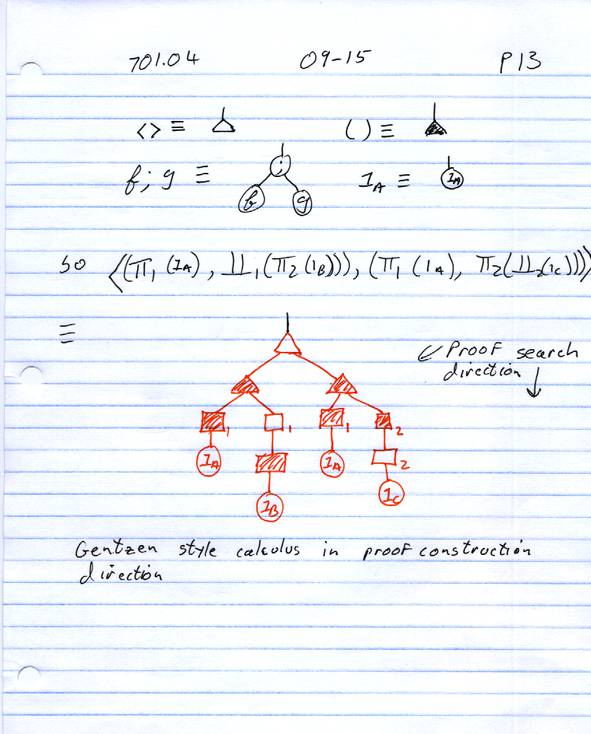 701.04 09-15 P13
<> ≡ ( ) ≡
f; g ≡ ; f g 1_A ≡ 1_A
so ⟨(π₁(1_A), ⨿₁(π₂(1_B))), (π₁(1_A), π₂(⨿₂(1_C)))⟩
≡
↙ Proof search
direction ↓
1 1 1 2
1_A 1_A 2
1_B 1_C
Gentzen style calculus in proof construction
direction